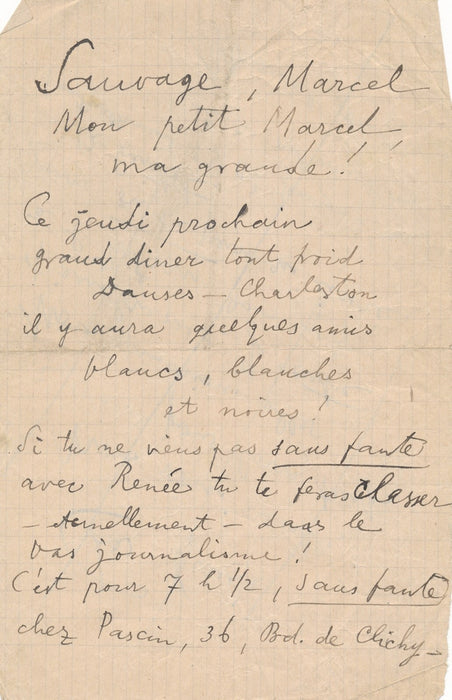 Sauvage, Marcel
Mon petit Marcel,
ma grande !
Ce jeudi prochain
grand diner tout froid
Danses — Charleston
il y aura quelques amis
blancs, blanches
et noires !
Si tu ne viens pas sans faute
avec Renée tu te feras classer
— éternellement — dans le
bas journalisme !
C'est pour 7 h 1/2, sans faute
chez Pascin, 36, Bd. de Clichy —